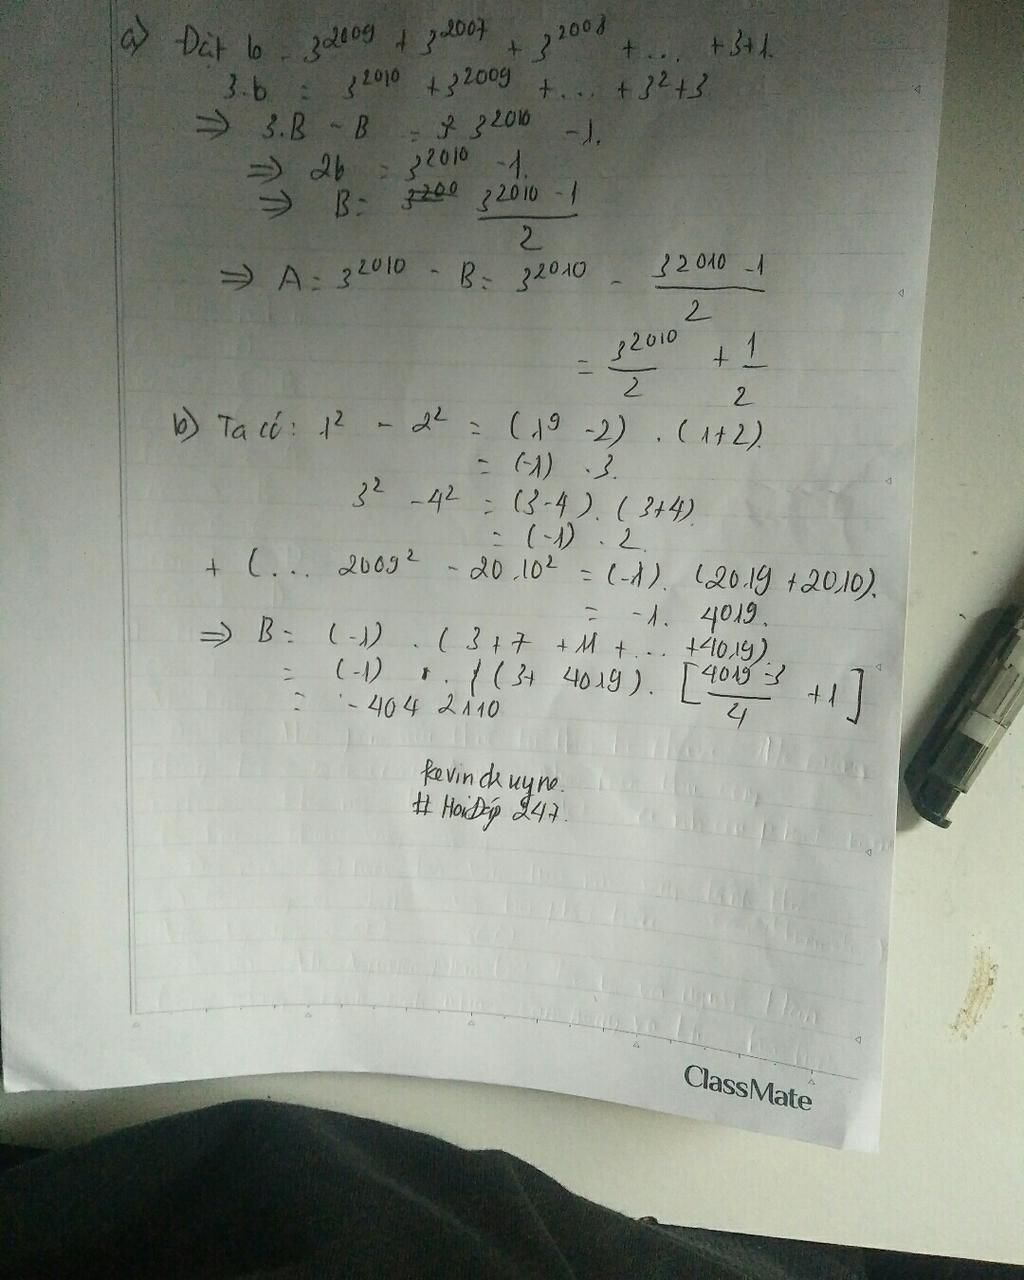 a) Đặt b = 3^2009 + 3^2007 + 3^2008 + ... + 3+1.
3.b = 3^2010 + 3^2009 + ... + 3^2+3
⇒ 3.B - B = 3^2010 -1.
⇒ 2b = 3^2010 -1.
⇒ B = (3^2010 -1)/2
⇒ A = 3^2010 - B = 3^2010 - (3^2010 -1)/2
= 3^2010/2 + 1/2
b) Ta có: 1^2 - 2^2 = (1^9 -2) . (1+2).
= (-1) .3.
3^2 -4^2 = (3-4). (3+4).
= (-1) . 2.
+ (... 2009^2 - 20.10^2 = (-1). (20.19 +20.10).
= -1. 4019.
⇒ B = (-1) . (3+7 +11 + ... +40.19).
= (-1) . (3+ 4019). [(4019-3)/4 +1]
= -404 2110
kevindkuyne.
# HoiĐáp 247.
ClassMate